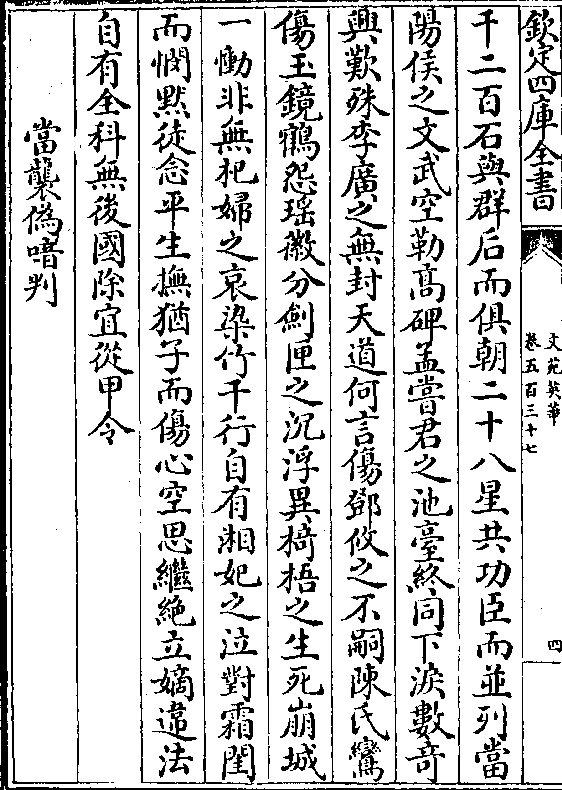 欽定四庫全書
文苑英華
卷五百三十七
四
千二百石與群后而俱朝二十八星共功臣而並列當
陽侯之文武空勒髙碑孟嘗君之池臺終同下淚數竒
興歎殊李廣之無封天道何言傷鄧攸之不嗣陳氏鸞
傷玉鏡鶴怨瑶徽分劍匣之沉浮異椅梧之生死崩城
一慟非無杞婦之哀染竹千行自有湘妃之泣對霜閨
而憫黙徒念平生撫猶子而傷心空思繼絶立嫡違法
自有全科無後國除宜從甲令
當襲偽喑判